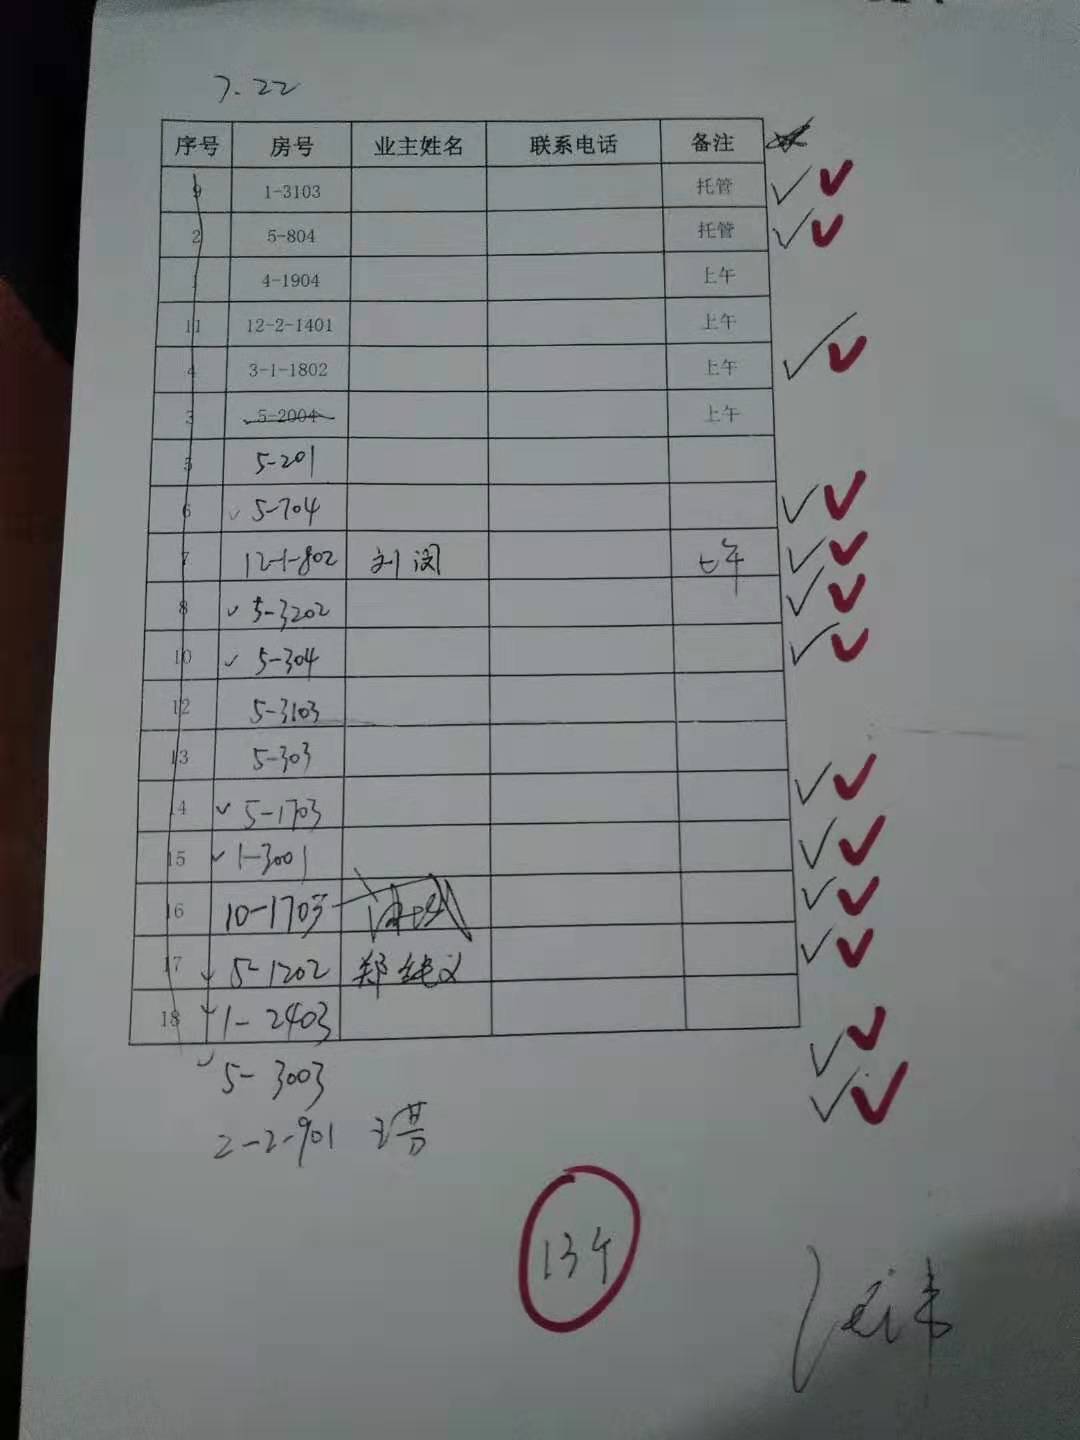 7.22
序号 房号 业主姓名 联系电话 备注
9 1-3103 托管 ✓ ✓
2 5-804 托管 ✓ ✓
1 4-1904 上午
11 12-2-1401 上午
4 3-1-1802 上午 ✓ ✓
3 5-2004 上午
5 5-201
6 ✓ 5-704 ✓ ✓
7 12-1-802 刘闵 上午 ✓ ✓
8 ✓ 5-3202 ✓ ✓
10 ✓ 5-304 ✓ ✓
12 5-3103
13 5-303
14 ✓ 5-1703 ✓ ✓
15 ✓ 1-3001 ✓ ✓
16 10-1703 ✓ ✓
17 ✓ 5-1202 郑继义 ✓ ✓
18 ✓ 1-2403
✓ 5-3003 ✓ ✓
2-2-901 ✓ ✓
13个